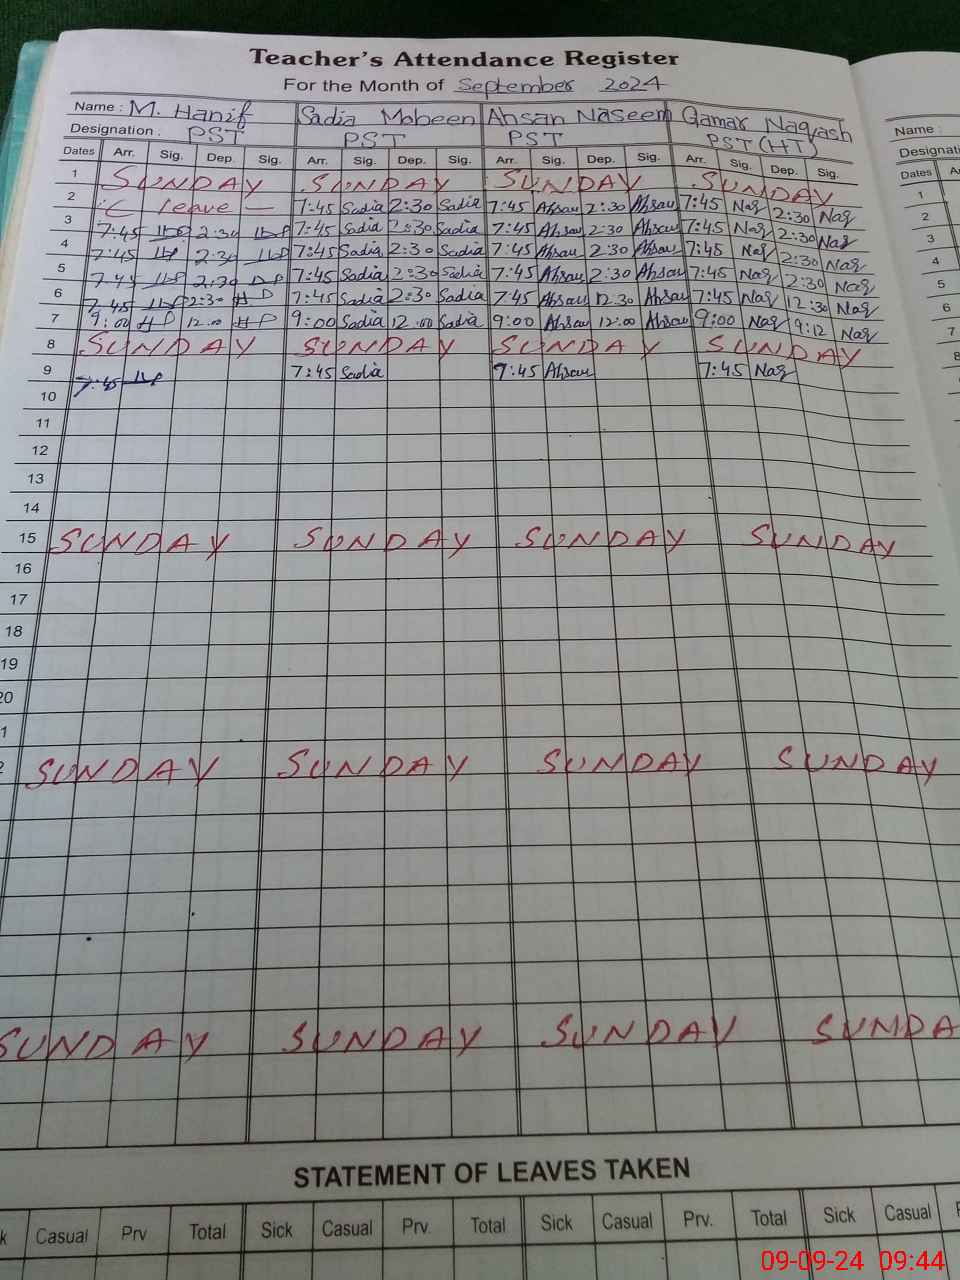 Teacher's Attendance Register
For the Month of September 2024
Name : M. Hanif Sadia Mobeen Ahsan Naseem Qamar Naqash Name :
Designation : PST PST PST PST (HT)
Dates Arr. Sig. Dep. Sig. Arr. Sig. Dep. Sig. Arr. Sig. Dep. Sig. Arr. Sig. Dep. Sig. Dates
1 SUNDAY SUNDAY SUNDAY SUNDAY 1
2 leave 7:45 Sadia 2:30 Sadia 7:45 Ahsan 2:30 Ahsan 7:45 Naq 2:30 Naq 2
3 7:45 2:30 7:45 Sadia 2:30 Sadia 7:45 Ahsan 2:30 Ahsan 7:45 Naq 2:30 Naq 3
4 7:45 2:30 7:45 Sadia 2:30 Sadia 7:45 Ahsan 2:30 Ahsan 7:45 Naq 2:30 Naq 4
5 7:45 2:30 7:45 Sadia 2:30 Sadia 7:45 Ahsan 2:30 Ahsan 7:45 Naq 2:30 Naq 5
6 7:45 2:30 7:45 Sadia 2:30 Sadia 7:45 Ahsan 12.30 Ahsan 7:45 Naq 12:30 Naq 6
7 9:00 12.00 9:00 Sadia 12.00 Sadia 9:00 Ahsan 12:00 Ahsan 9:00 Naq 9:12 Naq 7
8 SUNDAY SUNDAY SUNDAY SUNDAY 8
9 7:45 7:45 Sadia 7:45 Ahsan 7:45 Naq 9
10
11
12
13
14
15 SUNDAY SUNDAY SUNDAY SUNDAY
16
17
18
19
20
1
2 SUNDAY SUNDAY SUNDAY SUNDAY
SUNDAY SUNDAY SUNDAY SUNDA
STATEMENT OF LEAVES TAKEN
k Casual Prv Total Sick Casual Prv. Total Sick Casual Prv. Total Sick Casual
09-09-24 09:44